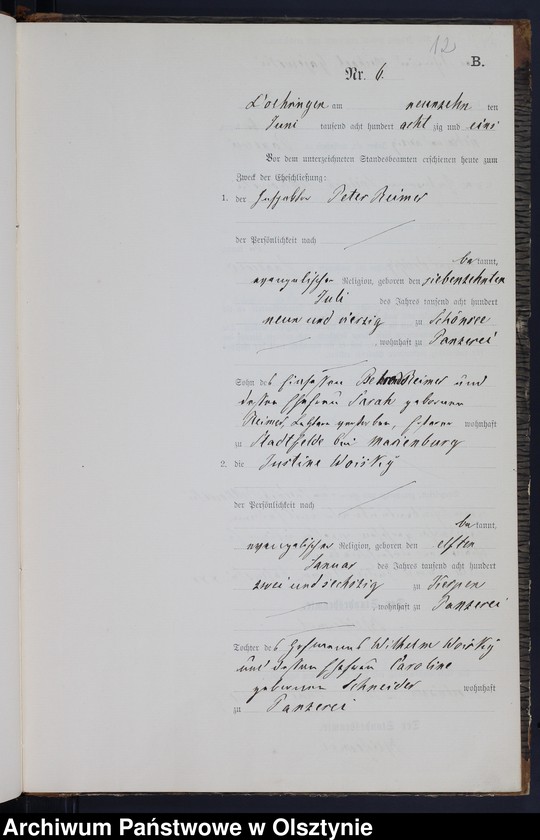 12
B.
Nr. 6.
Lochringen am neunzehn ten
Juni tausend acht hundert acht zig und eins
Vor dem unterzeichneten Standesbeamten erschienen heute zum
Zweck der Eheschließung:
1. der Peter Reimer
der Persönlichkeit nach
be kannt,
evangelischer Religion, geboren den siebenzehnten
Juli des Jahres tausend acht hundert
neun und vierzig zu Schönsee
, wohnhaft zu Panzerei
Sohn des Einsassen Reimer und
dessen Ehefrau Sarah geborenen
Reimer, Letztere verstorben, Ersterer wohnhaft
zu Stadtfelde bei Marienburg
2. die Justine Woisky
der Persönlichkeit nach
be kannt,
evangelischer Religion, geboren den elften
Januar des Jahres tausend acht hundert
zwei und sechszig zu
wohnhaft zu Panzerei
Tochter des Hofmanns Wilhelm Woisky
und dessen Ehefrau Caroline
geborenen Schneider wohnhaft
zu Panzerei
Archiwum Państwowe w Olsztynie